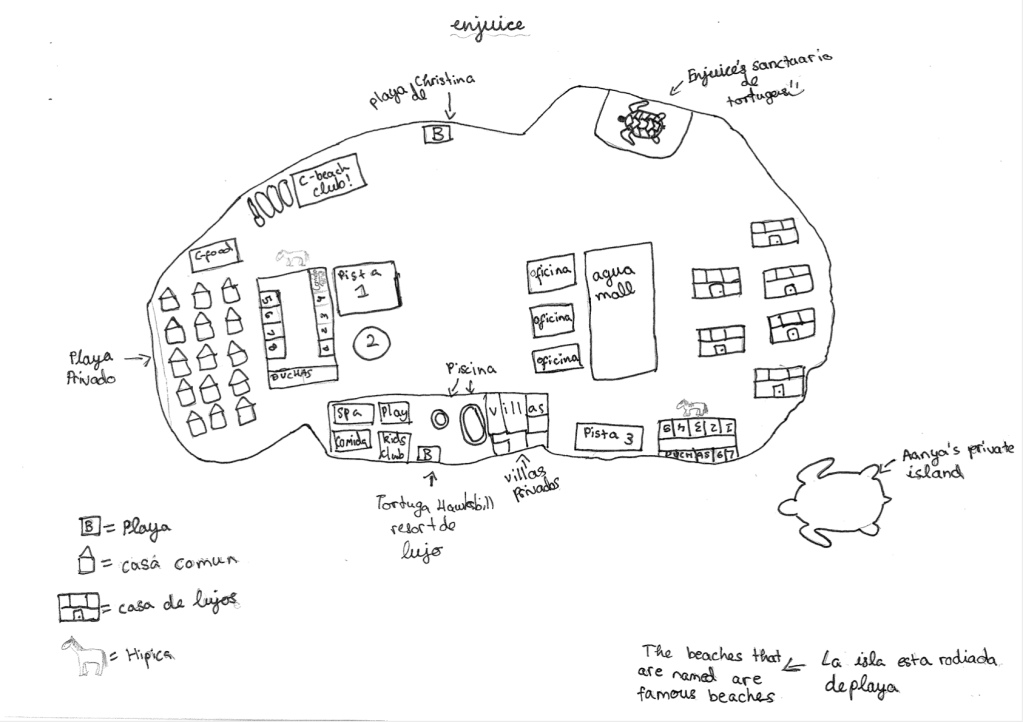 enjuice
playa Christina
de
Enjuice's sanctuario
de
tortugas
B
C-beach
club!
C-food
Pista
1
2
5
6
7
8
4
3
2
DUCHAS
oficina
oficina
oficina
agua
mall
Playa
Privado
Piscina
spa
play
Comida
kids
club
B
villas
villas
Privados
Pista 3
5 4 3 2 1
DUCHAS 6 7
Tortuga Hawksbill
resort de
lujo
Aanya's private
island
B = Playa
= casa comun
= casa de lujos
= Hipica
The beaches that
are named are
famous beaches
La isla esta rodiada
de playa